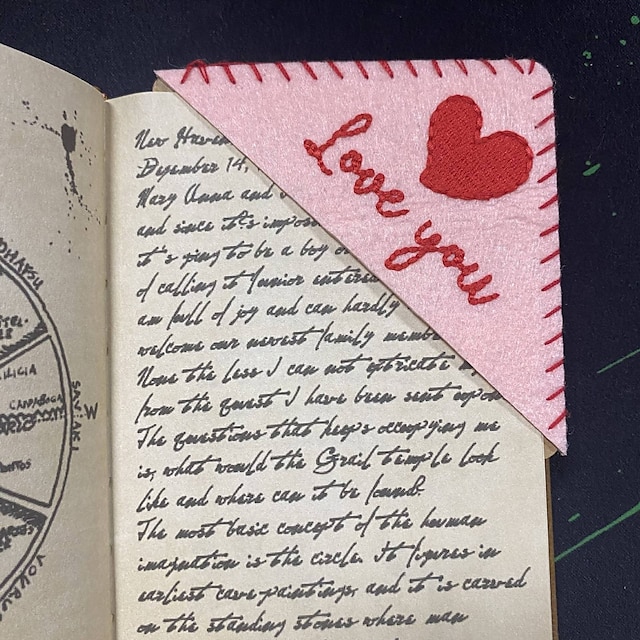 Love you
New Haven
Desember 14,
Mary Anna and
and since it's impos
it's going to be a boy o
of calling it Junior entered
am full of joy and can hardly
welcome our newest family memb
None the less I can not eptricate
from the quest I have been sent upon
The questions that keeps occupying me
is, what would the Grail temple look
like and where can it be found.
The most basic concept of the human
imagination is the circle. It figures in
earliest cave paintings, and it is carved
on the standing stones where man
SANIAKI
W